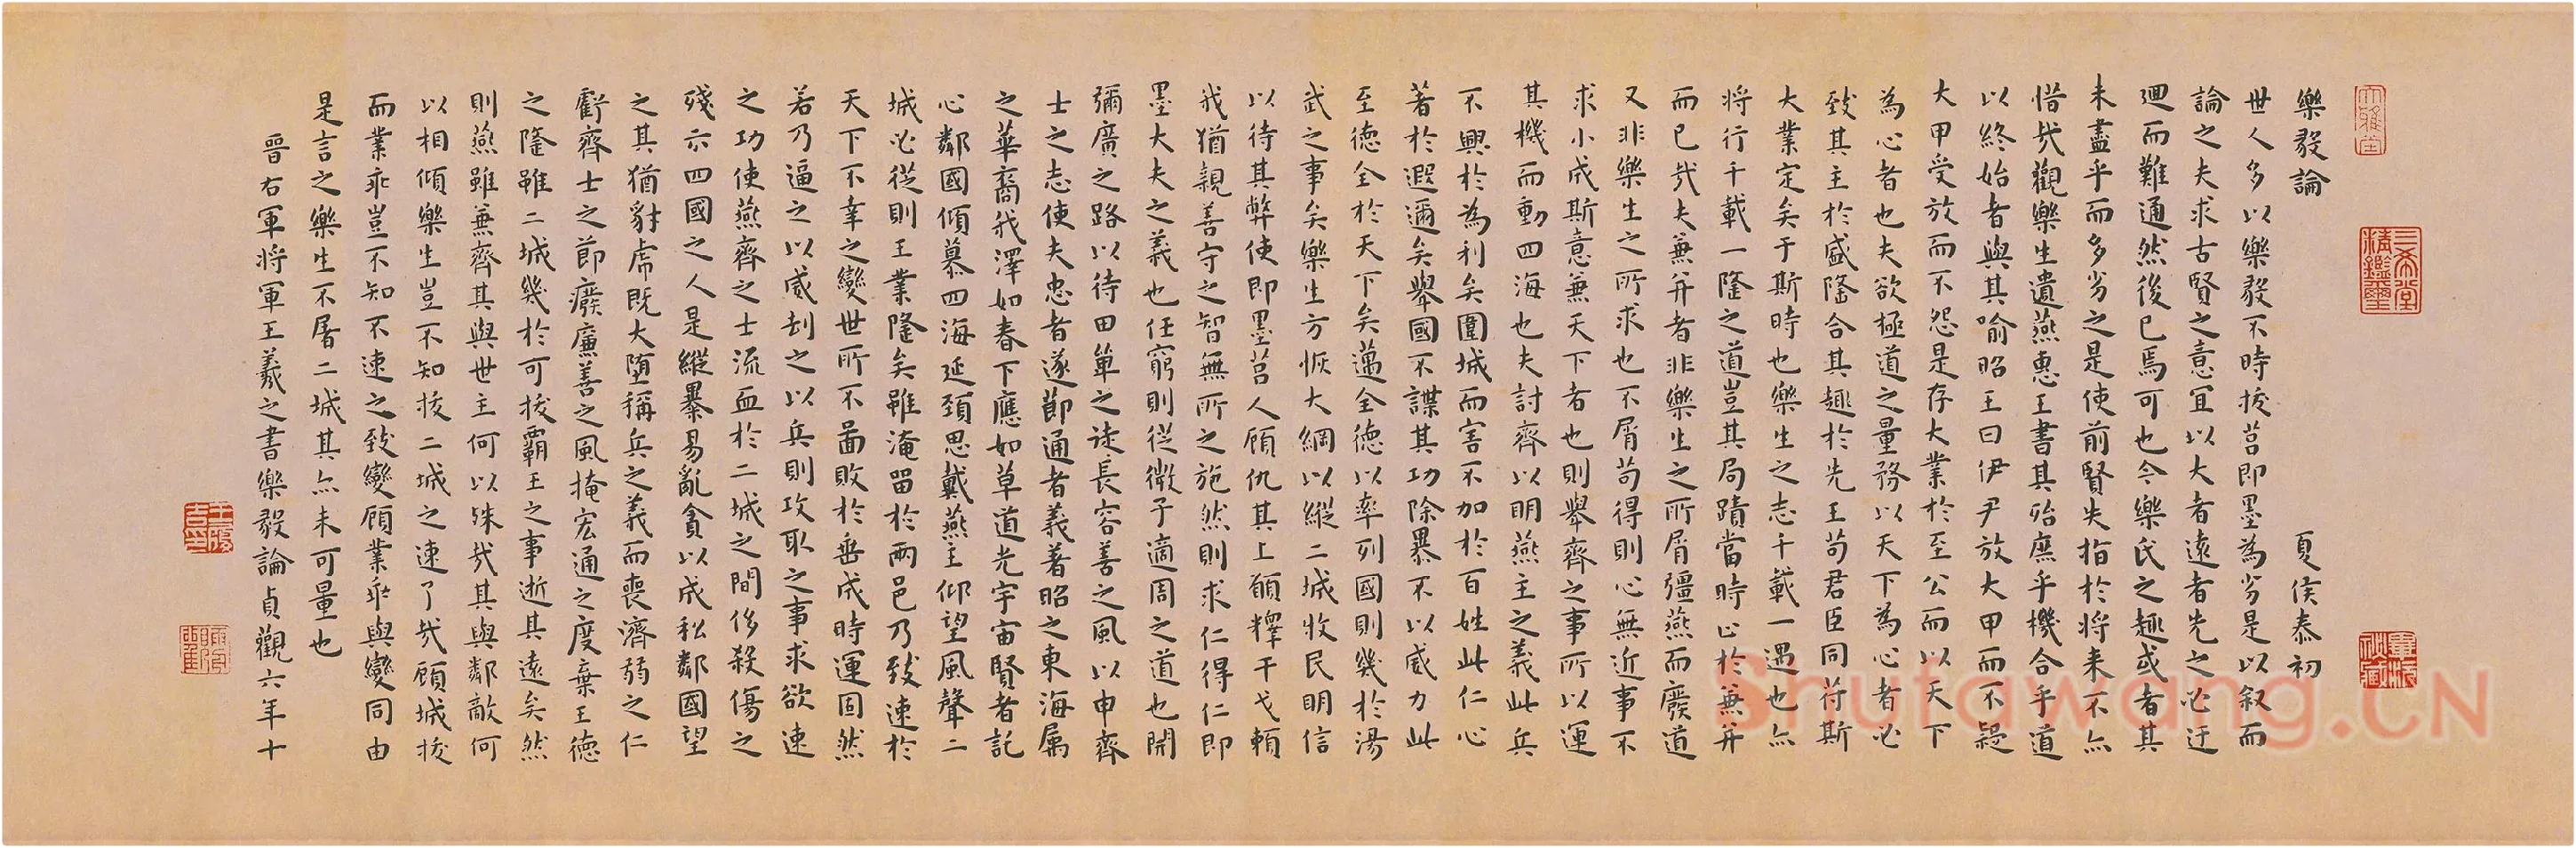 樂毅論　夏侯泰初
世人多以樂毅不時拔莒即墨為劣是以叙而
論之夫求古賢之意宜以大者遠者先之必迂
迴而難通然後已焉可也今樂氏之趣或者其
未盡乎而多劣之是使前賢失指於将来不亦
惜哉觀樂生遺燕惠王書其殆庶乎機合乎道
以終始者與其喻昭王曰伊尹放大甲而不疑
大甲受放而不怨是存大業於至公而以天下
為心者也夫欲極道之量務以天下為心者必
致其主於盛隆合其趣於先王苟君臣同符斯
大業定矣于斯時也樂生之志千載一遇也亦
将行千載一隆之道豈其局蹟當時止於兼并
而已哉夫兼并者非樂生之所屑彊燕而廢道
又非樂生之所求也不屑苟得則心無近事不
求小成斯意兼天下者也則舉齊之事所以運
其機而動四海也夫討齊以明燕主之義此兵
不興於為利矣圍城而害不加於百姓此仁心
著於遐邇矣舉國不謀其功除暴不以威力此
至德全於天下矣邁全德以率列國則幾於湯
武之事矣樂生方恢大綱以縱二城牧民明信
以待其弊使即墨莒人顧仇其上願釋干戈賴
我猶親善守之智無所之施然則求仁得仁即
墨大夫之義也任窮則從微子適周之道也開
彌廣之路以待田單之徒長容善之風以申齊
士之志使夫忠者遂節通者義著昭之東海属
之華裔我澤如春下應如草道光宇宙賢者託
心鄰國傾慕四海延頚思戴燕主仰望風聲二
城必從則王業隆矣雖淹留於兩邑乃致速於
天下不幸之變世所不圖敗於垂成時運固然
若乃逼之以威刼之以兵則攻取之事求欲速
之功使燕齊之士流血於二城之間侈殺傷之
殘示四國之人是縱暴易亂貪以成私鄰國望
之其猶豺虎既大墮稱兵之義而喪濟弱之仁
虧齊士之節癈廉善之風掩宏通之度棄王德
之隆雖二城幾於可拔霸王之事逝其遠矣然
則燕雖兼齊其與世主何以殊哉其與鄰敵何
以相傾樂生豈不知拔二城之速了哉顧城拔
而業乖豈不知不速之致變顧業乖與變同由
是言之樂生不屠二城其亦未可量也
晉右軍将軍王羲之書樂毅論貞觀六年十
大雅堂
三希堂
精鑑璽
Shufawang.CN